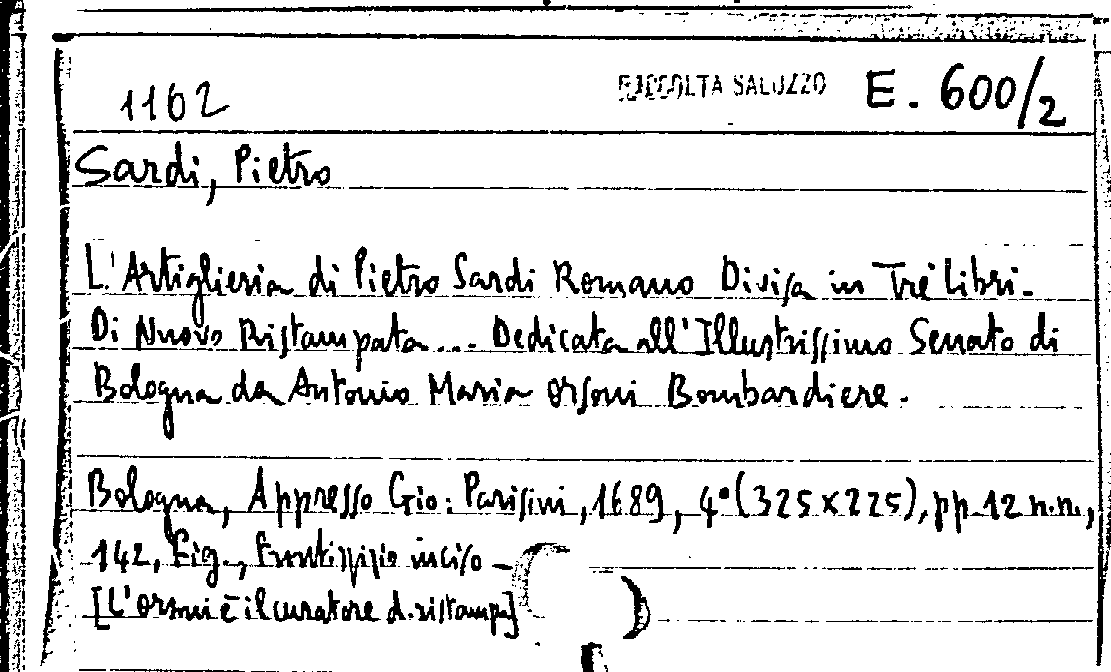 1162 RACCOLTA SALUZZO E. 600/2
Sardi, Pietro
L'Artiglieria di Pietro Sardi Romano Divisa in Tré Libri.
Di Nuovo Ristampata... Dedicata all'Illustrissimo Senato di
Bologna da Antonio Maria Orsoni Bombardiere.
Bologna, Appresso Gio: Parisini, 1689, 4°(325x225), pp. 12 n.n.,
142, Fig., Frontispizio inciso -
[L'Orsoni è il curatore d. ristampa]